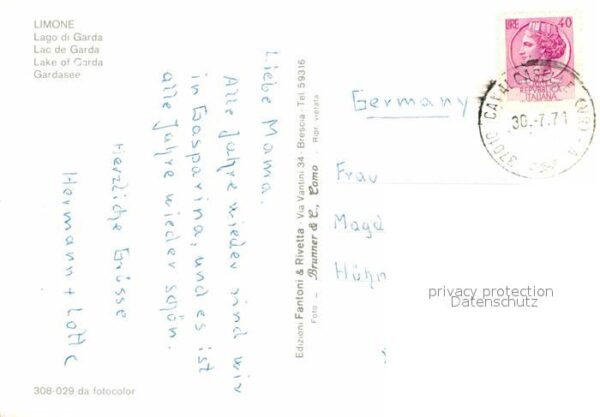 LIMONE
Lago di Garda
Lac de Garda
Lake of Garda
Gardasee
Liebe Mama.
Alle Jahre wieder sind wir
in Gasparina, und es ist
alle Jahre wieder schön.
Herzliche Grüsse
Hermann + Lotte
308-029 da fotocolor
Edizioni Fantoni & Rivetta - Via Vantini 34 - Brescia - Tel. 59316
Foto - Brunner & C., Como - Ripr. vietata
LIRE 40
REPVBBLICA
ITALIANA
37010
30.-7.71
Germany
Frau
Magd
Hühn
privacy protection
Datenschutz